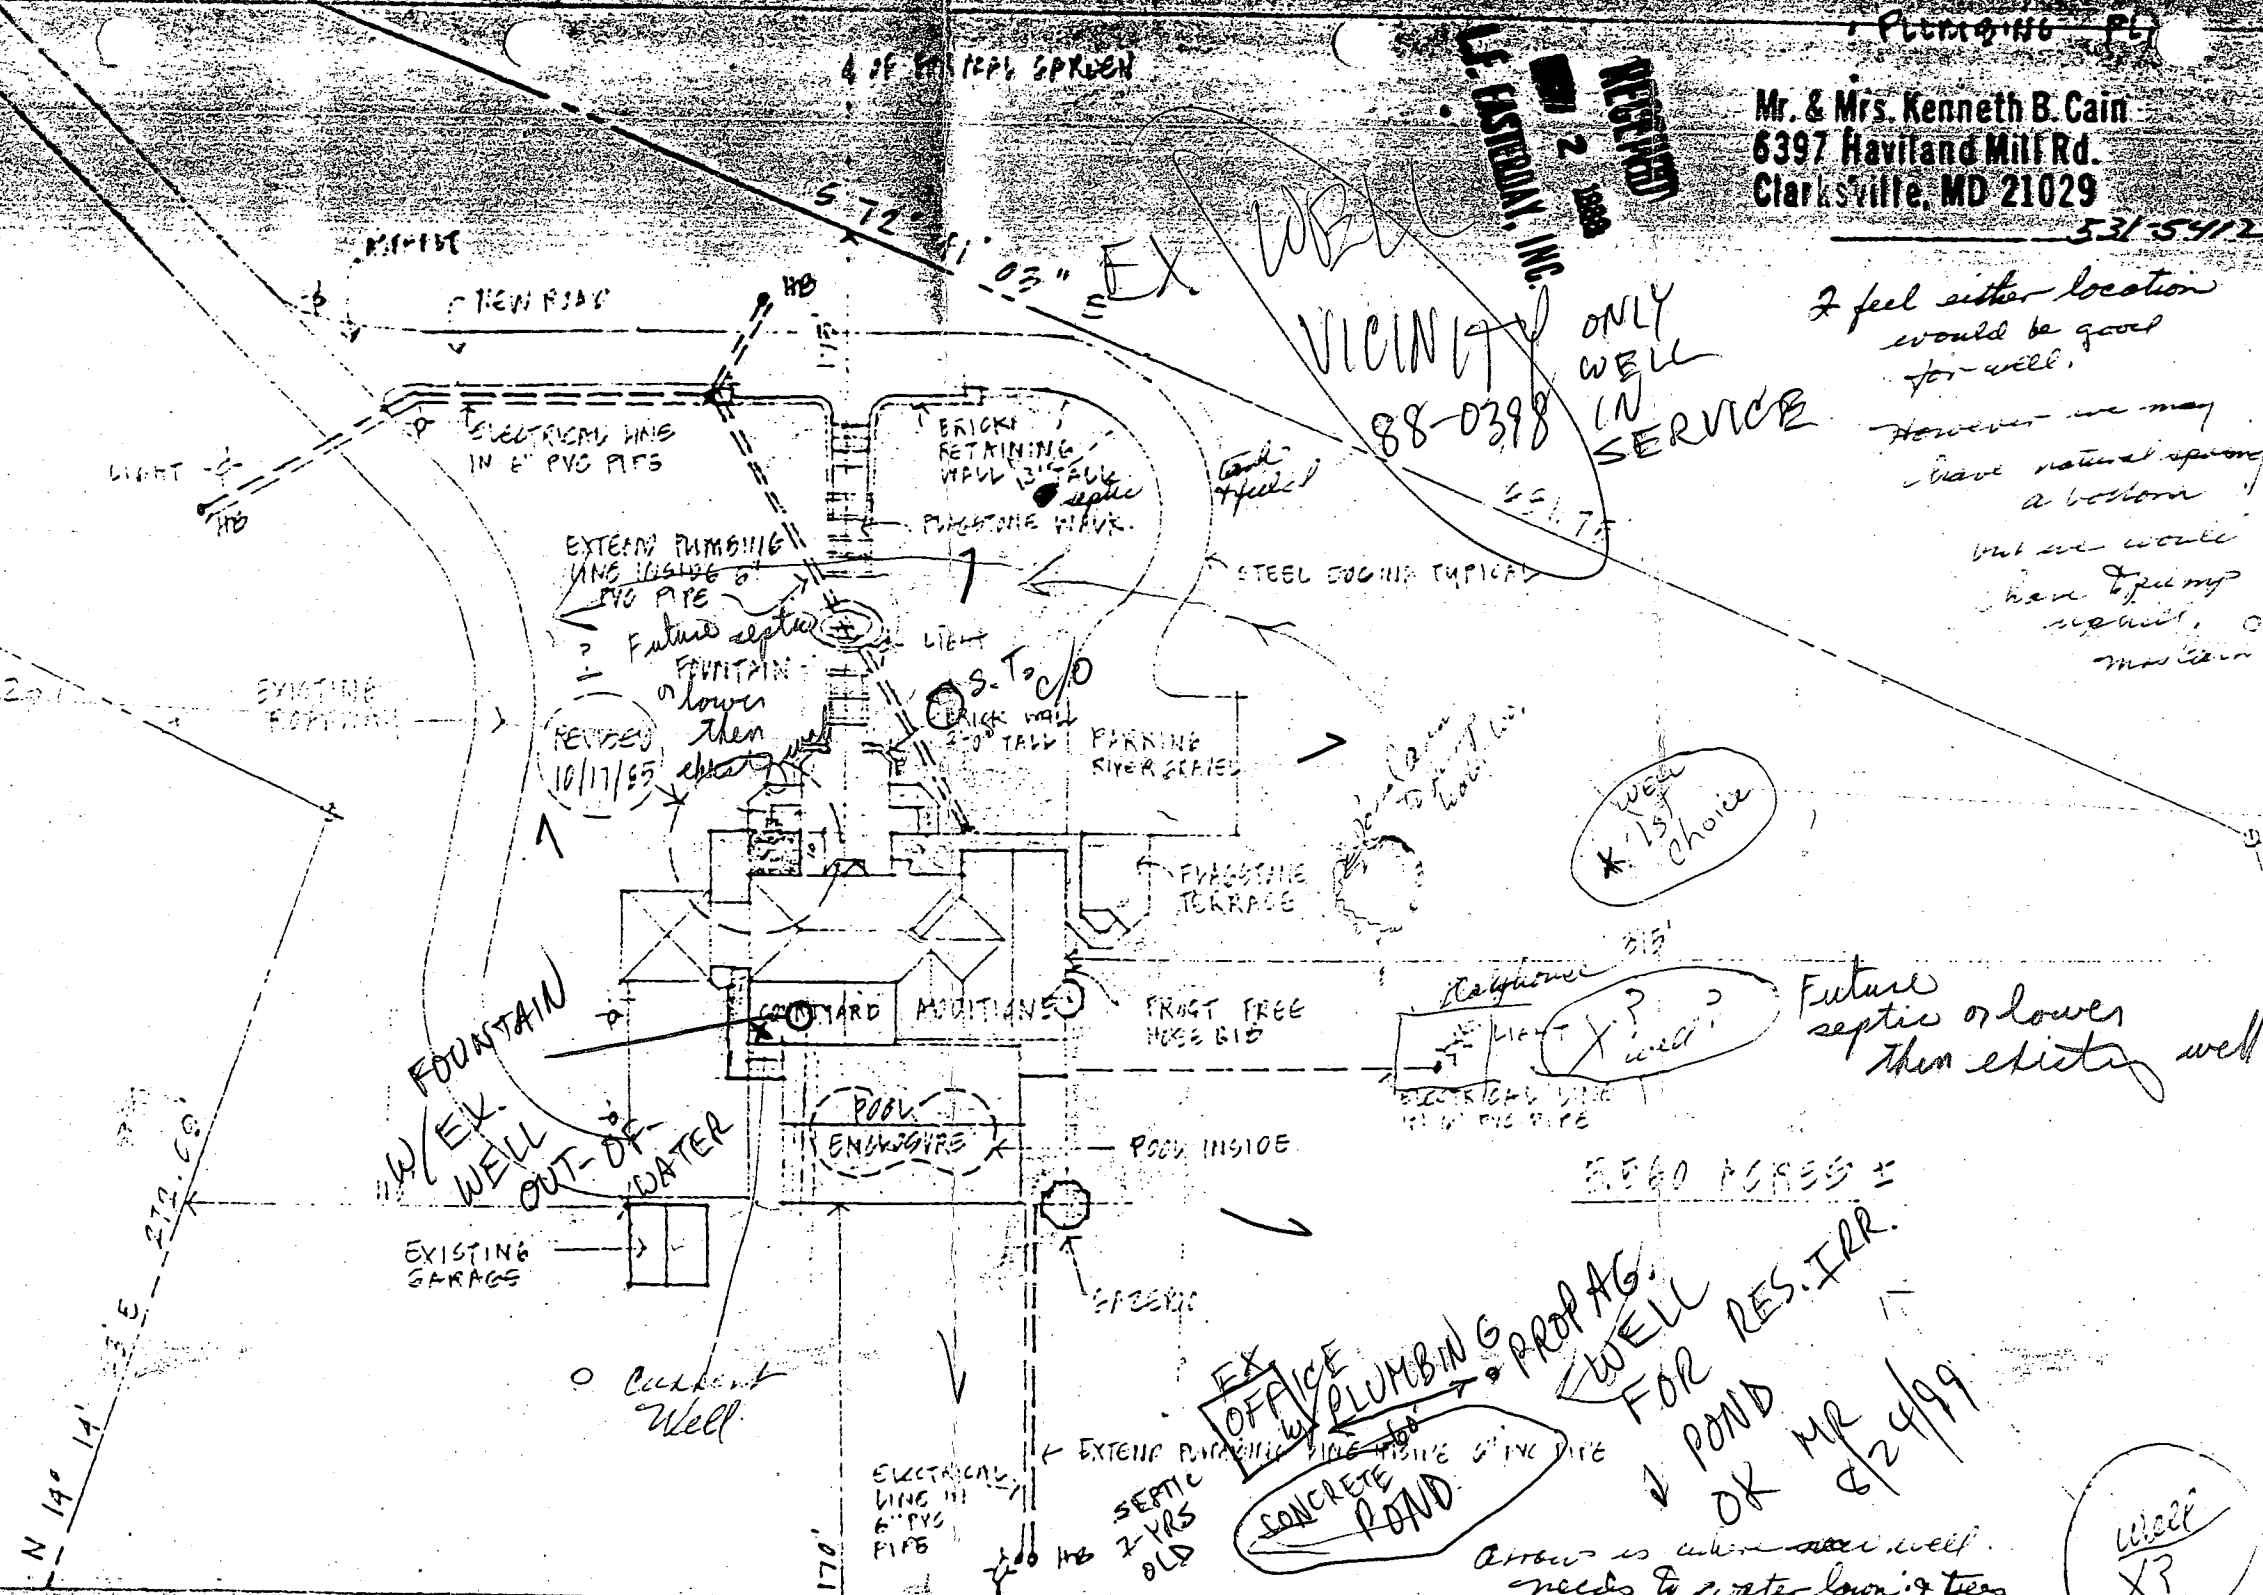 Mr. & Mrs. Kenneth B. Cain
6397 Haviland Mill Rd.
Clarksville, MD 21029
531-5412
RECEIVED
2 1988
L.F. EASTERDAY, INC.
GARDEN
S 72°
03"
NEW ROAD
HB
115'
EX. WELL
VICINITY
88-0398
ONLY
WELL
IN
SERVICE
I feel either location
would be good
for well.
However we may
have natural spring
a bottom
but we would
have to pump
LIGHT
HB
ELECTRICAL LINE
IN 6" PVC PIPE
BRICK
RETAINING
WALL 3' TALL
septic
FLAGSTONE WALK.
EXTEND PLUMBING
LINE INSIDE 6"
PVC PIPE
STEEL EDGING TYPICAL
1
?
Future septic
FOUNTAIN
or lower
then
exist
well
LIGHT
S.T. C/O
BRICK WALL
2'-0" TALL
PARKING
RIVER GRAVEL
EXISTING
REVISED
10/17/85
1
well
* 1st
choice
FLAGSTONE
TERRACE
315'
COURTYARD
ADDITIONS
FROST FREE
HOSE BIB
LIGHT
X ? ?
well
Future
septic or lower
then existing well
ELECTRICAL LINE
IN 6" PVC PIPE
FOUNTAIN
W/EX.
WELL
OUT-OF-
WATER
POOL
ENCLOSURE
POOL INSIDE
EXISTING
GARAGE
GAZEBO
ACRES ±
N 14° 14' 23" E 272.68'
Current
Well
170'
ELECTRICAL
LINE IN
6" PVC
PIPE
EXTEND PLUMBING LINE INSIDE 6" PVC PIPE
HB
EX
OFFICE
W/ PLUMBING
60'
SEPTIC
2-YRS
OLD
CONCRETE
POND
PROP AG.
WELL
FOR RES. IRR.
POND
OK MR
8/24/99
Arrows is where well
needs to water lawn & trees
Well
X?